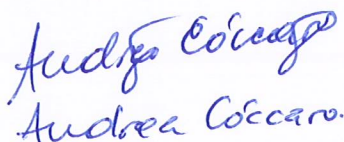 Andrea Cóccaro
Andrea Cóccaro.